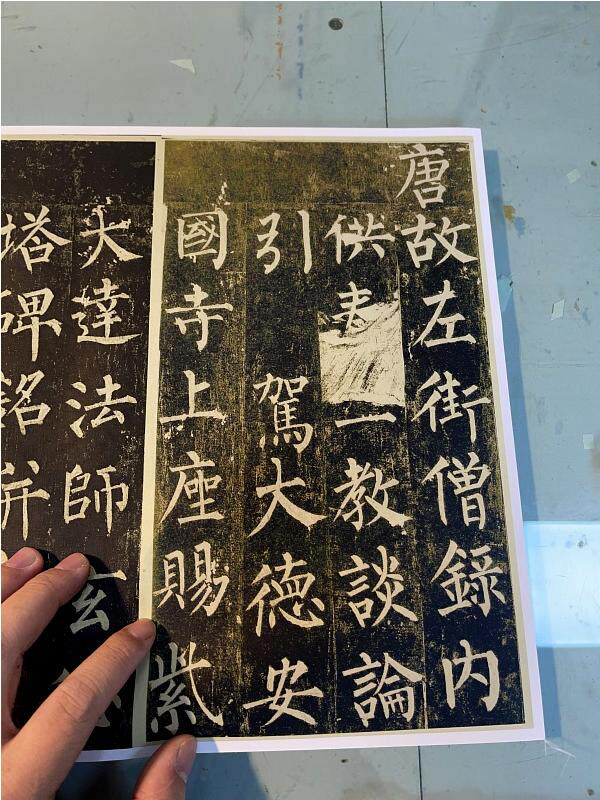 唐故左街僧錄内
供教談論
引 駕大德安
國寺上座賜紫
大達法師玄
塔碑銘并